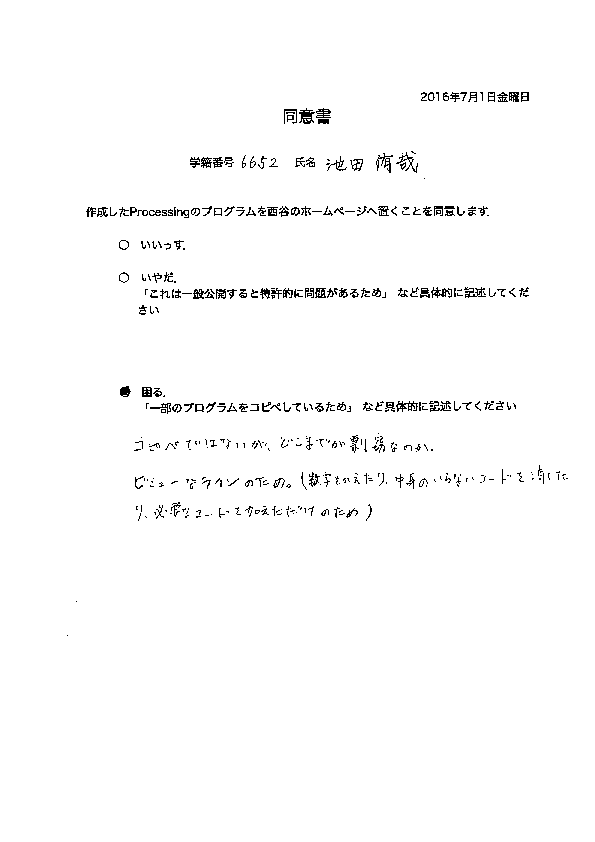 2016年7月1日金曜日
同意書
学籍番号 6652 氏名 池田 侑哉
作成したProcessingのプログラムを西谷のホームページへ置くことを同意します.
○ いいっす.
○ いやだ.
「これは一般公開すると特許的に問題があるため」 など具体的に記述してくだ
さい
● 困る.
「一部のプログラムをコピペしているため」 など具体的に記述してください
コピペではないが、どこまでが剽窃なのか.
ビミョーなラインのため。(数字をかえたり、中身のいらないコードを消した
り、必要なコードを加えただけのため)